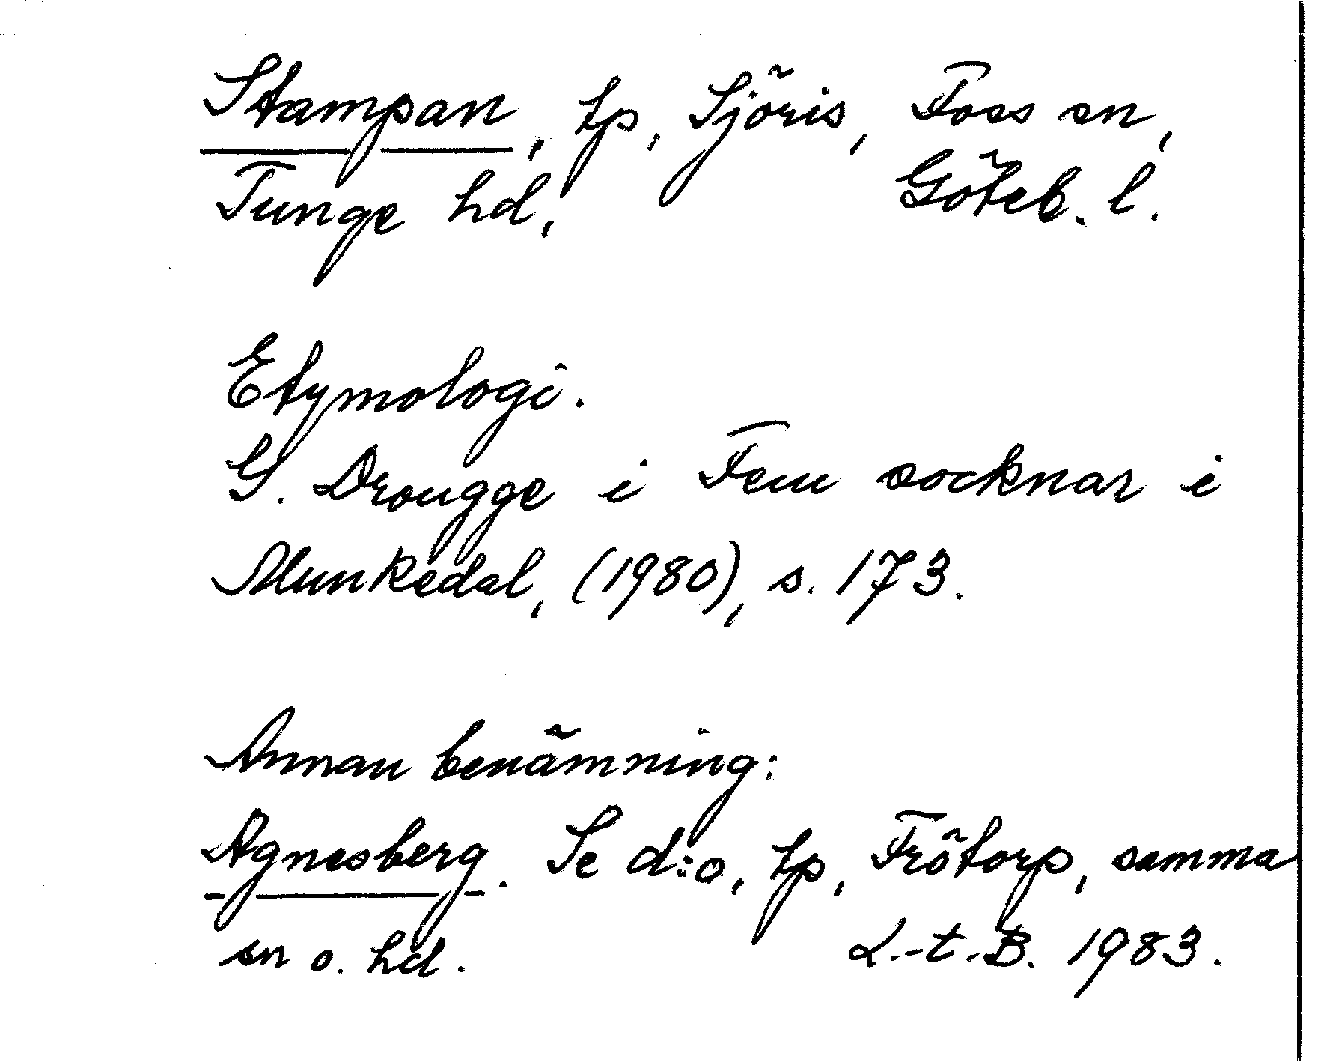 Stampan, tp, Sjöris, Foss sn,
Tunge hd, Göteb. l.
Etymologi.
G. Drougge i Fem socknar i
Munkedal, (1980), s. 173.
Annan benämning:
Agnesberg. Se d:o, tp, Frötorp, samma
sn o. hd. L.-t.-B. 1983.